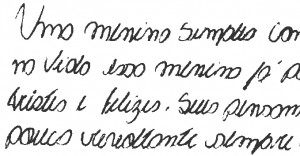 Uma menina simples com
na vida essa menina já p
tristes e felizes. Seus pensam
pouco sempre